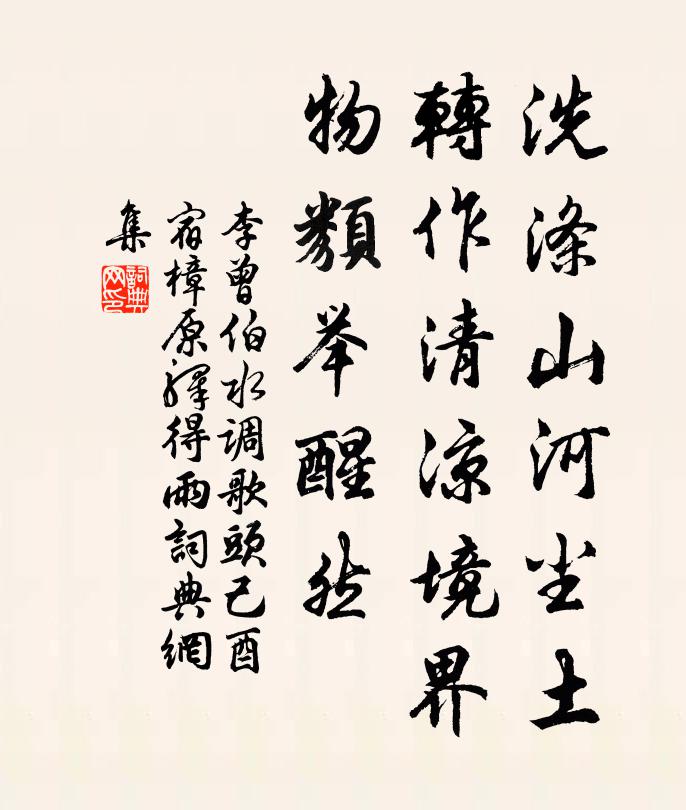 洗滌山河尘土
轉作清凉境界
物類举醒然
李曾伯水调歌頭己酉
宿樟原驛得雨詞典網
集
詞典
网印